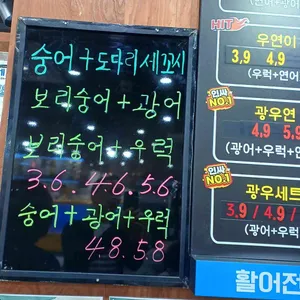 숭어+도다리세꼬시
보리숭어+광어
보리숭어+우럭
3.6 4.6 5.6
숭어+광어+우럭
4.8 5.8
HIT
우연이
3.9 4.9
(우럭+연어
인싸
NO.1
광우연
4.9 5.9
(광어+우럭
인싸
NO.1
광우세트
3.9 / 4.9 /
(광어+우럭
활어전